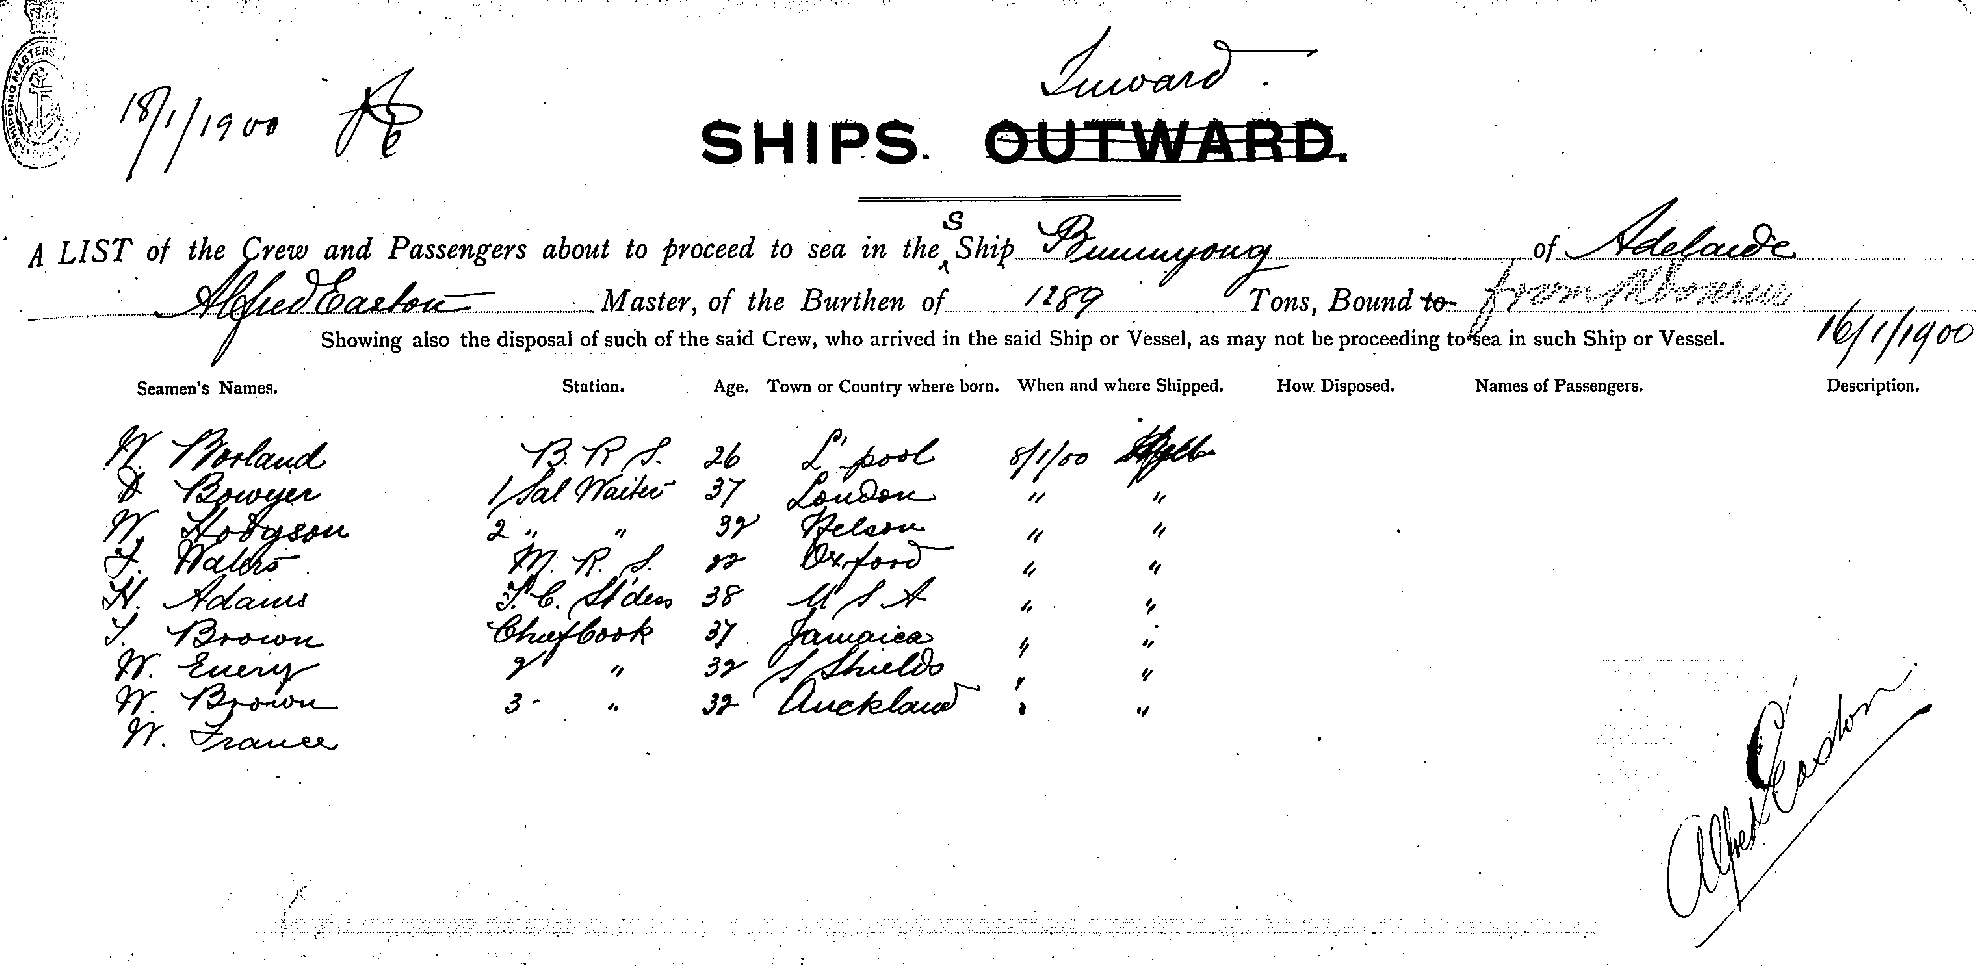 SHIPPING MASTERS
Inward.
18/1/1900
SHIPS. OUTWARD.
A LIST of the Crew and Passengers about to proceed to sea in the S Ship Buninyong of Adelaide
Alfred Easton Master, of the Burthen of 1289 Tons, Bound to from
Showing also the disposal of such of the said Crew, who arrived in the said Ship or Vessel, as may not be proceeding to sea in such Ship or Vessel. 16/1/1900
Seamen's Names. Station. Age. Town or Country where born. When and where Shipped. How Disposed. Names of Passengers. Description.
W. Borland B. R. S. 26 L'pool 8/1/00
D Bowyer 1 Sal Waiter 37 London " "
W. Hodgson 2 " " 32 Nelson " "
F. Waters M. R. S. 22 Oxford " "
H. Adams F. C. St'dess 38 U S A " "
T. Brown Chief Cook 37 Jamaica " "
W. Emery 2 " 32 S Shields " "
W. Brown 3 - " 32 Auckland " "
W. France
Alfred Easton